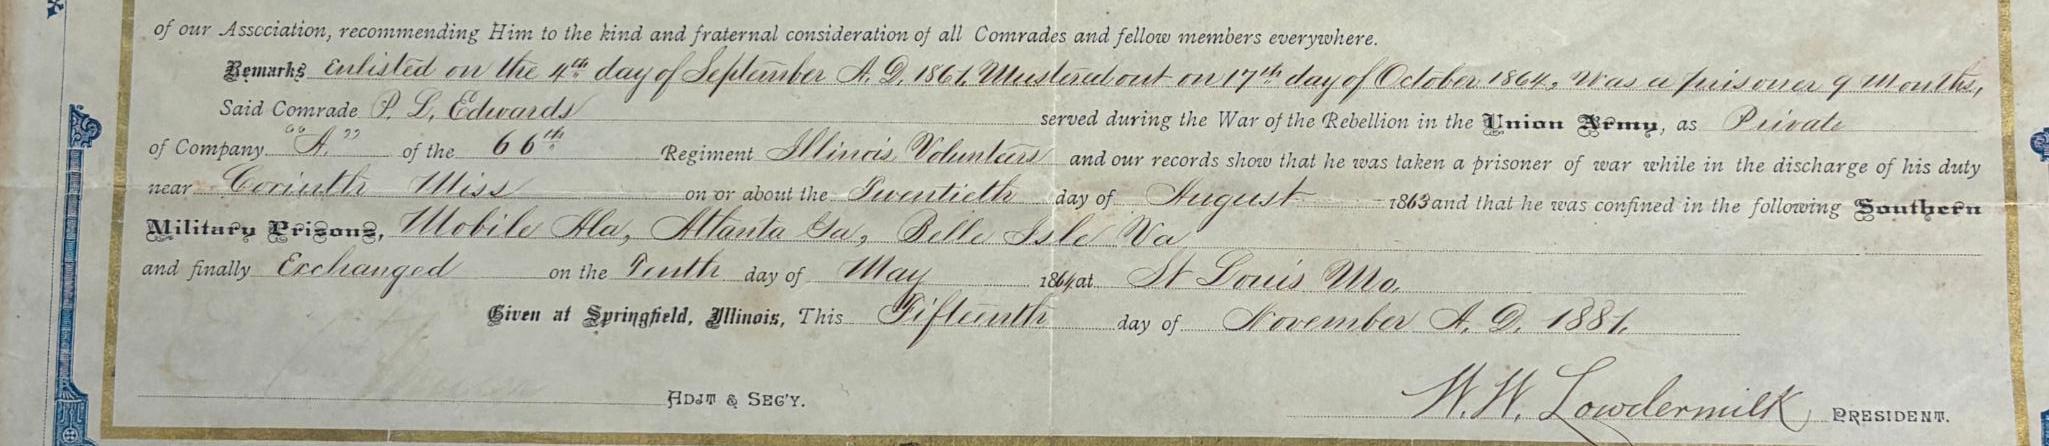 of our Association, recommending Him to the kind and fraternal consideration of all Comrades and fellow members everywhere.
Remarks Enlisted on the 4th day of September A. D. 1861, Mustered out on 17th day of October 1864, Was a prisoner 9 Months,
Said Comrade P. L. Edwards served during the War of the Rebellion in the Union Army, as Private
of Company "A." of the 66th Regiment Illinois Volunteers and our records show that he was taken a prisoner of war while in the discharge of his duty
near Corinth Miss on or about the Twentieth day of August 1863 and that he was confined in the following Southern
Military Prisons, Mobile Ala, Atlanta Ga, Belle Isle Va
and finally Exchanged on the Tenth day of May 1864 at St Louis Mo.
Given at Springfield, Illinois, This Fifteenth day of November A. D. 1881.
ADJT & SEC'Y. W. W. Lowdermilk PRESIDENT.